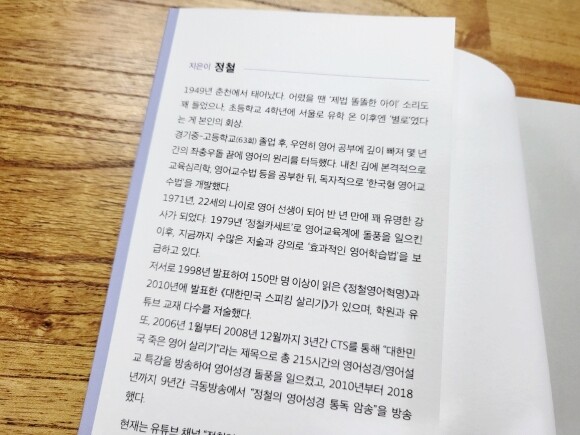 지은이 정철
1949년 춘천에서 태어났다. 어렸을 땐 '제법 똘똘한 아이' 소리도
꽤 들었으나, 초등학교 4학년에 서울로 유학 온 이후엔 '별로'였다
는 게 본인의 회상.
경기중~고등학교(63회) 졸업 후, 우연히 영어 공부에 깊이 빠져 몇 년
간의 좌충우돌 끝에 영어의 원리를 터득했다. 내친 김에 본격적으로
교육심리학, 영어교수법 등을 공부한 뒤, 독자적으로 '한국형 영어교
수법'을 개발했다.
1971년, 22세의 나이로 영어 선생이 되어 반 년 만에 꽤 유명한 강
사가 되었다. 1979년 '정철카세트'로 영어교육계에 돌풍을 일으킨
이후, 지금까지 수많은 저술과 강의로 '효과적인 영어학습법'을 보
급하고 있다.
저서로 1998년 발표하여 150만 명 이상이 읽은 《정철영어혁명》과
2010년에 발표한 《대한민국 스피킹 살리기》가 있으며, 학원과 유
튜브 교재 다수를 저술했다.
또, 2006년 1월부터 2008년 12월까지 3년간 CTS를 통해 "대한민
국 죽은 영어 살리기"라는 제목으로 총 215시간의 영어성경/영어설
교 특강을 방송하여 영어성경 돌풍을 일으켰고, 2010년부터 2018
년까지 9년간 극동방송에서 "정철의 영어성경 통독 암송"을 방송
했다.
현재는 유튜브 채널